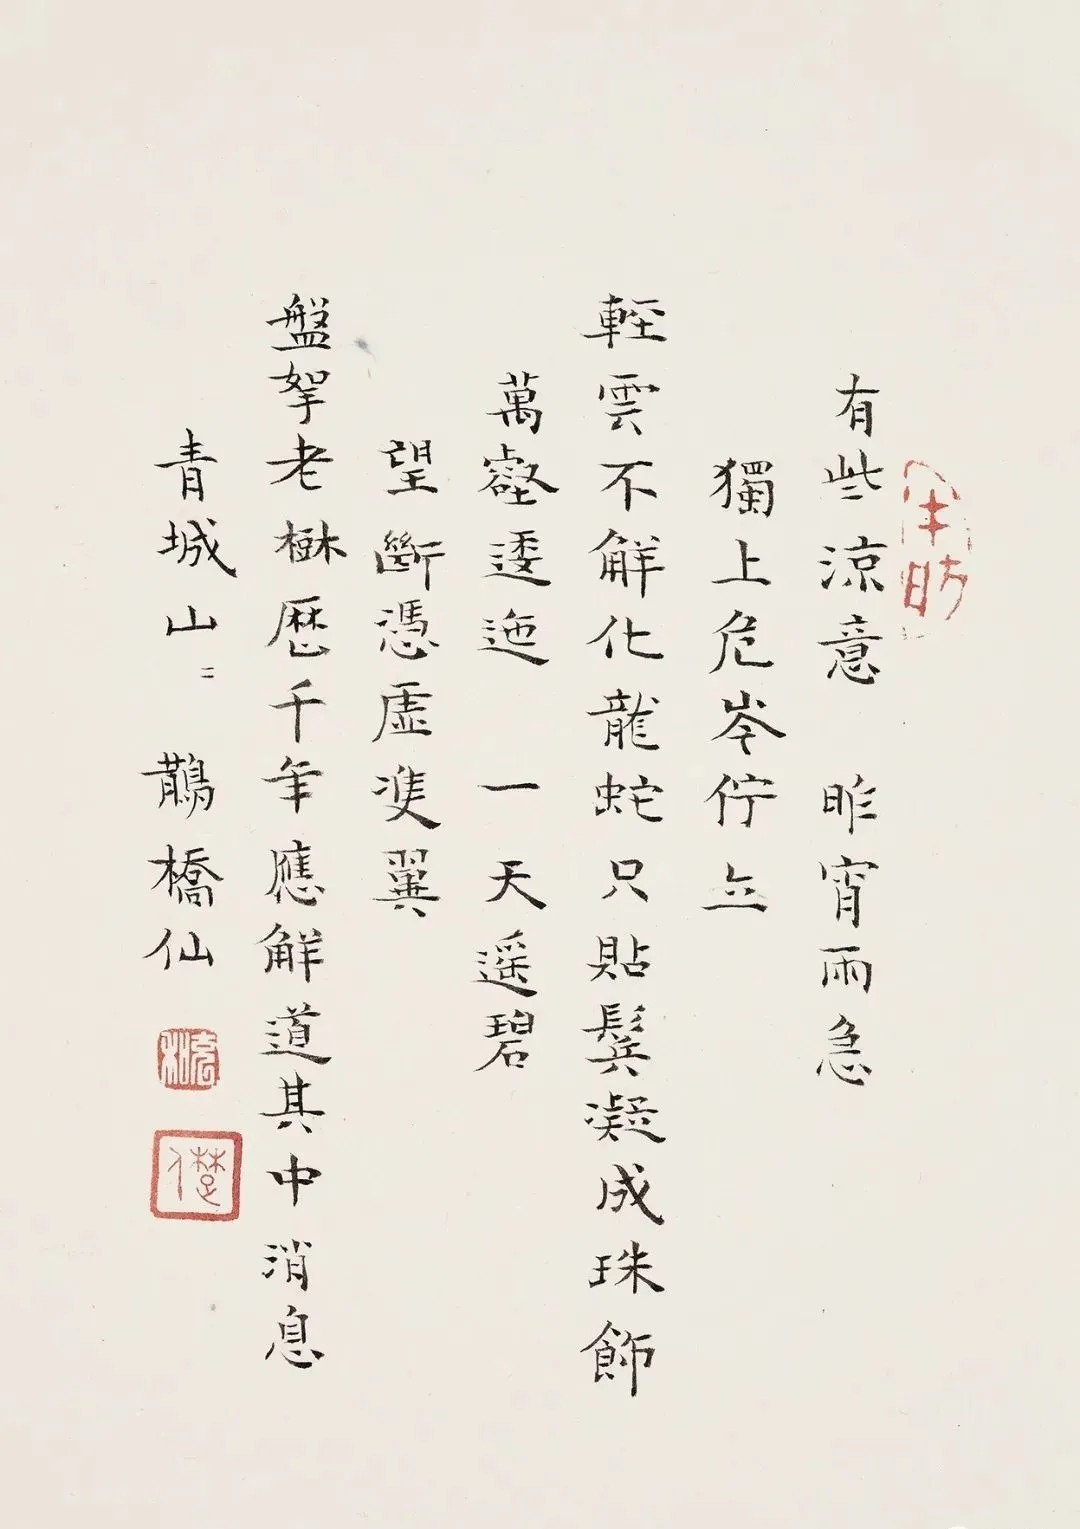 有些涼意　昨宵雨急
獨上危岑佇立
輕雲不解化龍蛇只貼鬢凝成珠飾
萬壑逶迤　一天遥碧
望斷憑虛雙翼
盤挐老樹歷千年應解道其中消息
青城山　鵲橋仙